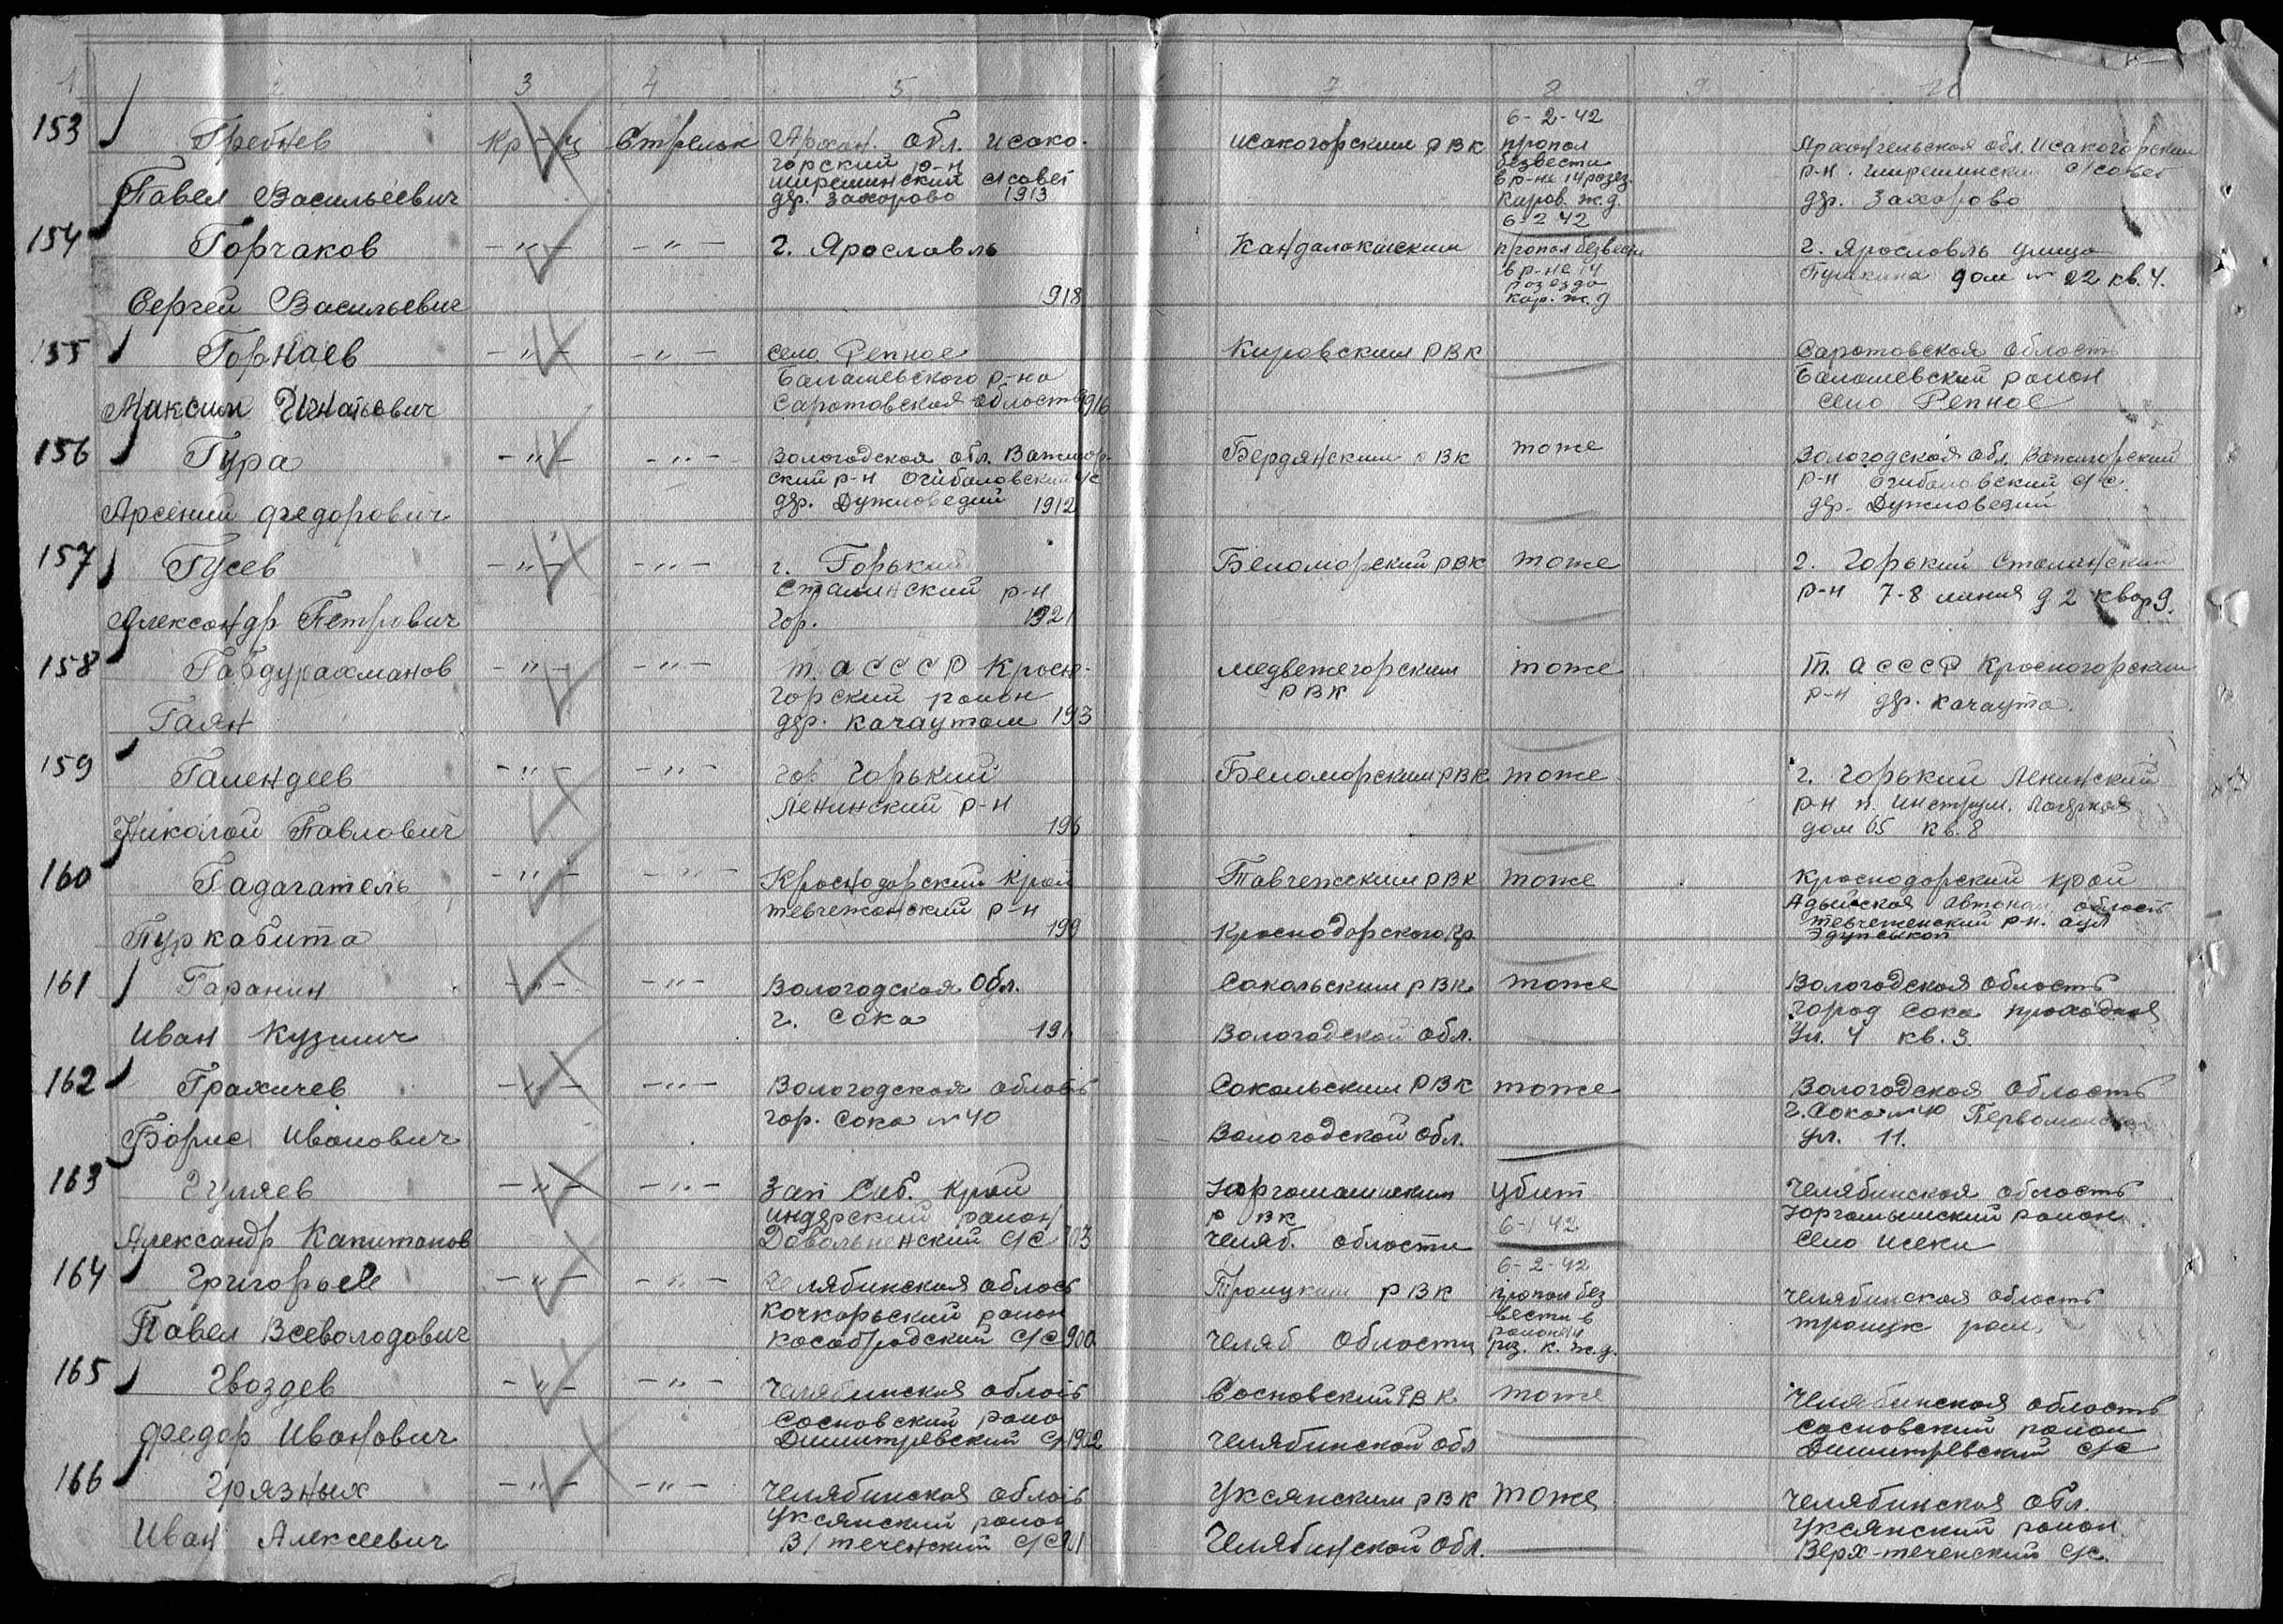 1 2 3 4 5 7 8 9 10
153 Гребнев Кр-ц Стрелок Архан. обл. Исако-
горский р-н
ширшинский с/совет
Павел Васильевич дер. Захарово 1913
Исакогорским РВК
6-2-42
пропал
безвести
в р-не 14 розез.
Киров. ж.д.
Архангельская обл. Исакогорский
р-н. ширшинский с/совет
дер. Захарово
154 Горчаков -"- -"- г. Ярославль
Сергей Васильевич 918
Кандалакшским
6-2 42
пропал безвести
в р-не 14
розезда
Кир. ж.д
г. Ярославль улица
Пушкина дом № 22 кв. 4.
155 Горнаев -"- -"- село Репное
Балашевского р-на
Максим Игнатьевич Саратовская область 1916
Кировским РВК
Саратовская область
Балашевский район
село Репное
156 Гура -"- -"- Вологодская обл. Важгор-
ский р-н Огибаловский с/с
Арсений Федорович дер. Дуниловедий 1912
Бердянским РВК тоже
Вологодская обл. Важгорский
р-н Огибаловский с/с.
дер. Дуниловедий
157 Гусев -"- -"- г. Горький
Сталинский р-н
Александр Петрович Гор. 1921
Беломорский РВК тоже
г. Горький Сталинский
р-н 7-8 линия д 2 квар 9.
158 Габдурахманов -"- -"- Т. АСССР Красн-
горский район
Гаян дер. Качаутам 193
Медвежегорским
РВК
тоже
Т. АСССР Красногорский
р-н дер. Качаута.
159 Галендеев -"- -"- гор Горький
Ленинский р-н
Николай Павлович 196
Беломорским РВК тоже
г. Горький Ленинский
р-н п. Инструм.
дом 65 кв. 8
160 Гадагатель -"- -"- Краснодарский край
тевчежанский р-н
Пуркабита 199
Тавчежским РВК тоже
Краснодарского кр.
Краснодарский край
Адыйская Автоном область
тевчеженский р-н. аул
161 Гаранин -"- -"- Вологодская Обл.
г. Сока
Иван Кузмич 191
Сокольским РВК тоже
Вологодской обл.
Вологодская область
город Сока проходная
ул. 4 кв. 3.
162 Грахичев -"- -"- Вологодская область
гор. Сока №40
Борис Иванович
Сокольским РВК тоже
Вологодской обл.
Вологодская область
г. Сока №40 Первомайская
ул. 11.
163 Гуляев -"- -"- Зап Сиб. край
индерский район
Александр Капитонов Довольненский с/с 903
Юргомашинским
РВК
Челяб. области
убит
6-1 42
Челябинская область
Юргомышский район
село Исеки
164 Григорьев -"- -"- Челябинская облось
Кочкорьский район
Павел Всеволодович Кособродский с/с 900
Троицким РВК
Челяб области
6-2-42
пропал без
вести в
районе 14
раз. к. ж.д.
Челябинская область
троицк
165 Гвоздев -"- -"- Челябинская облость
Сосновский район
Федор Иванович Димитревский с/с 1902
Сосновский РВК тоже
Челябинской обл
Челябинская область
Сосновский район
Димитревский с/с
166 Грязных -"- -"- Челябинская облось
Уксянский район
Иван Алексеевич В/теченский с/с 901
Уксянским РВК тоже
Челябинской обл.
Челябинская обл.
Уксянский район.
Верх-теченский с/с.